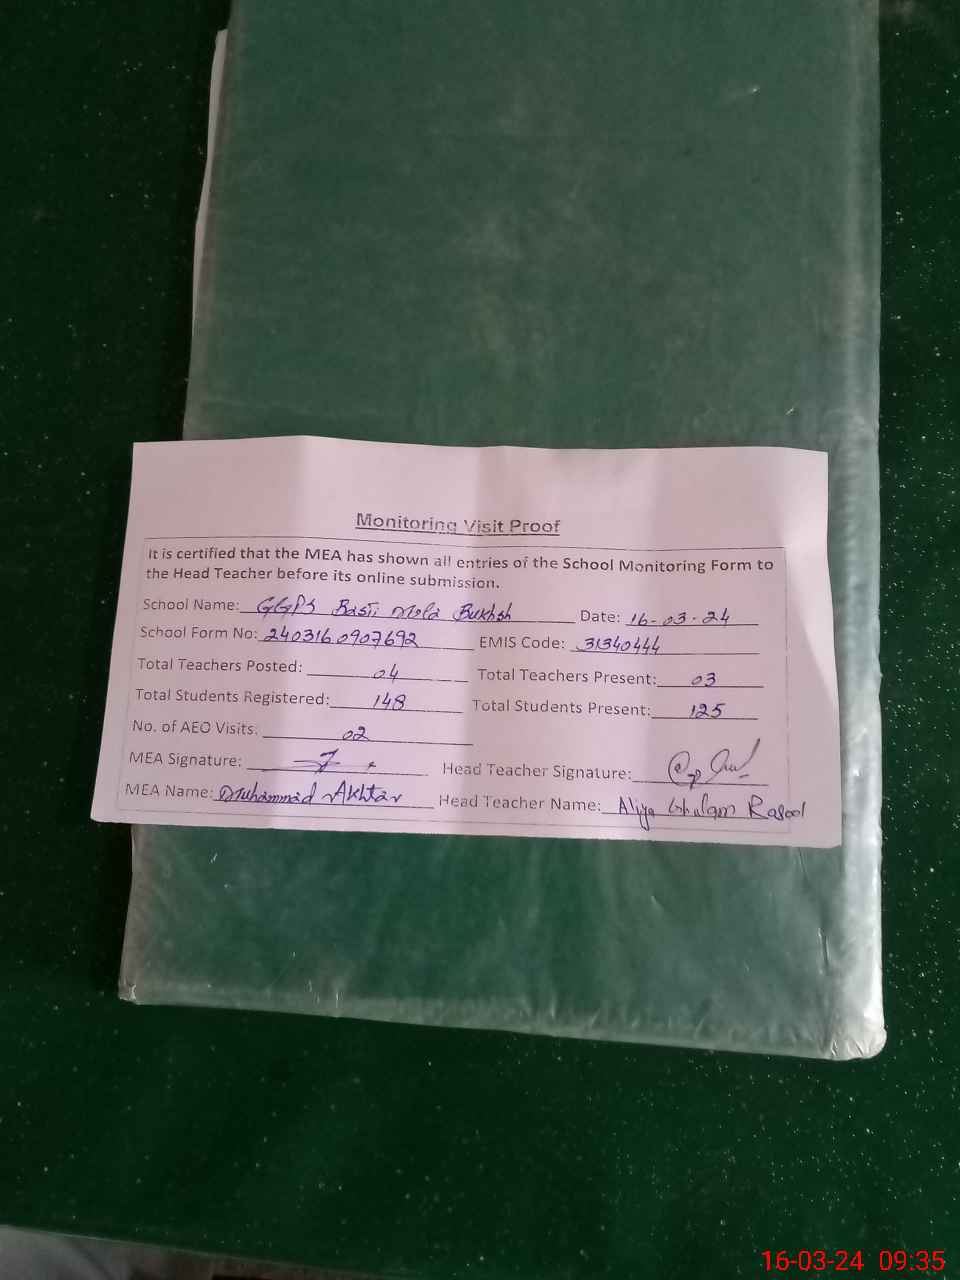 Monitoring Visit Proof
It is certified that the MEA has shown all entries of the School Monitoring Form to
the Head Teacher before its online submission.
School Name: GGPS Basti Mola Bukhsh Date: 16-03-24
School Form No: 240316 0907692 EMIS Code: 31340444
Total Teachers Posted: 04 Total Teachers Present: 03
Total Students Registered: 148 Total Students Present: 125
No. of AEO Visits: 02
MEA Signature: Head Teacher Signature:
MEA Name: Muhammad Akhtar Head Teacher Name: Aliya Ghulam Rasool
16-03-24 09:35